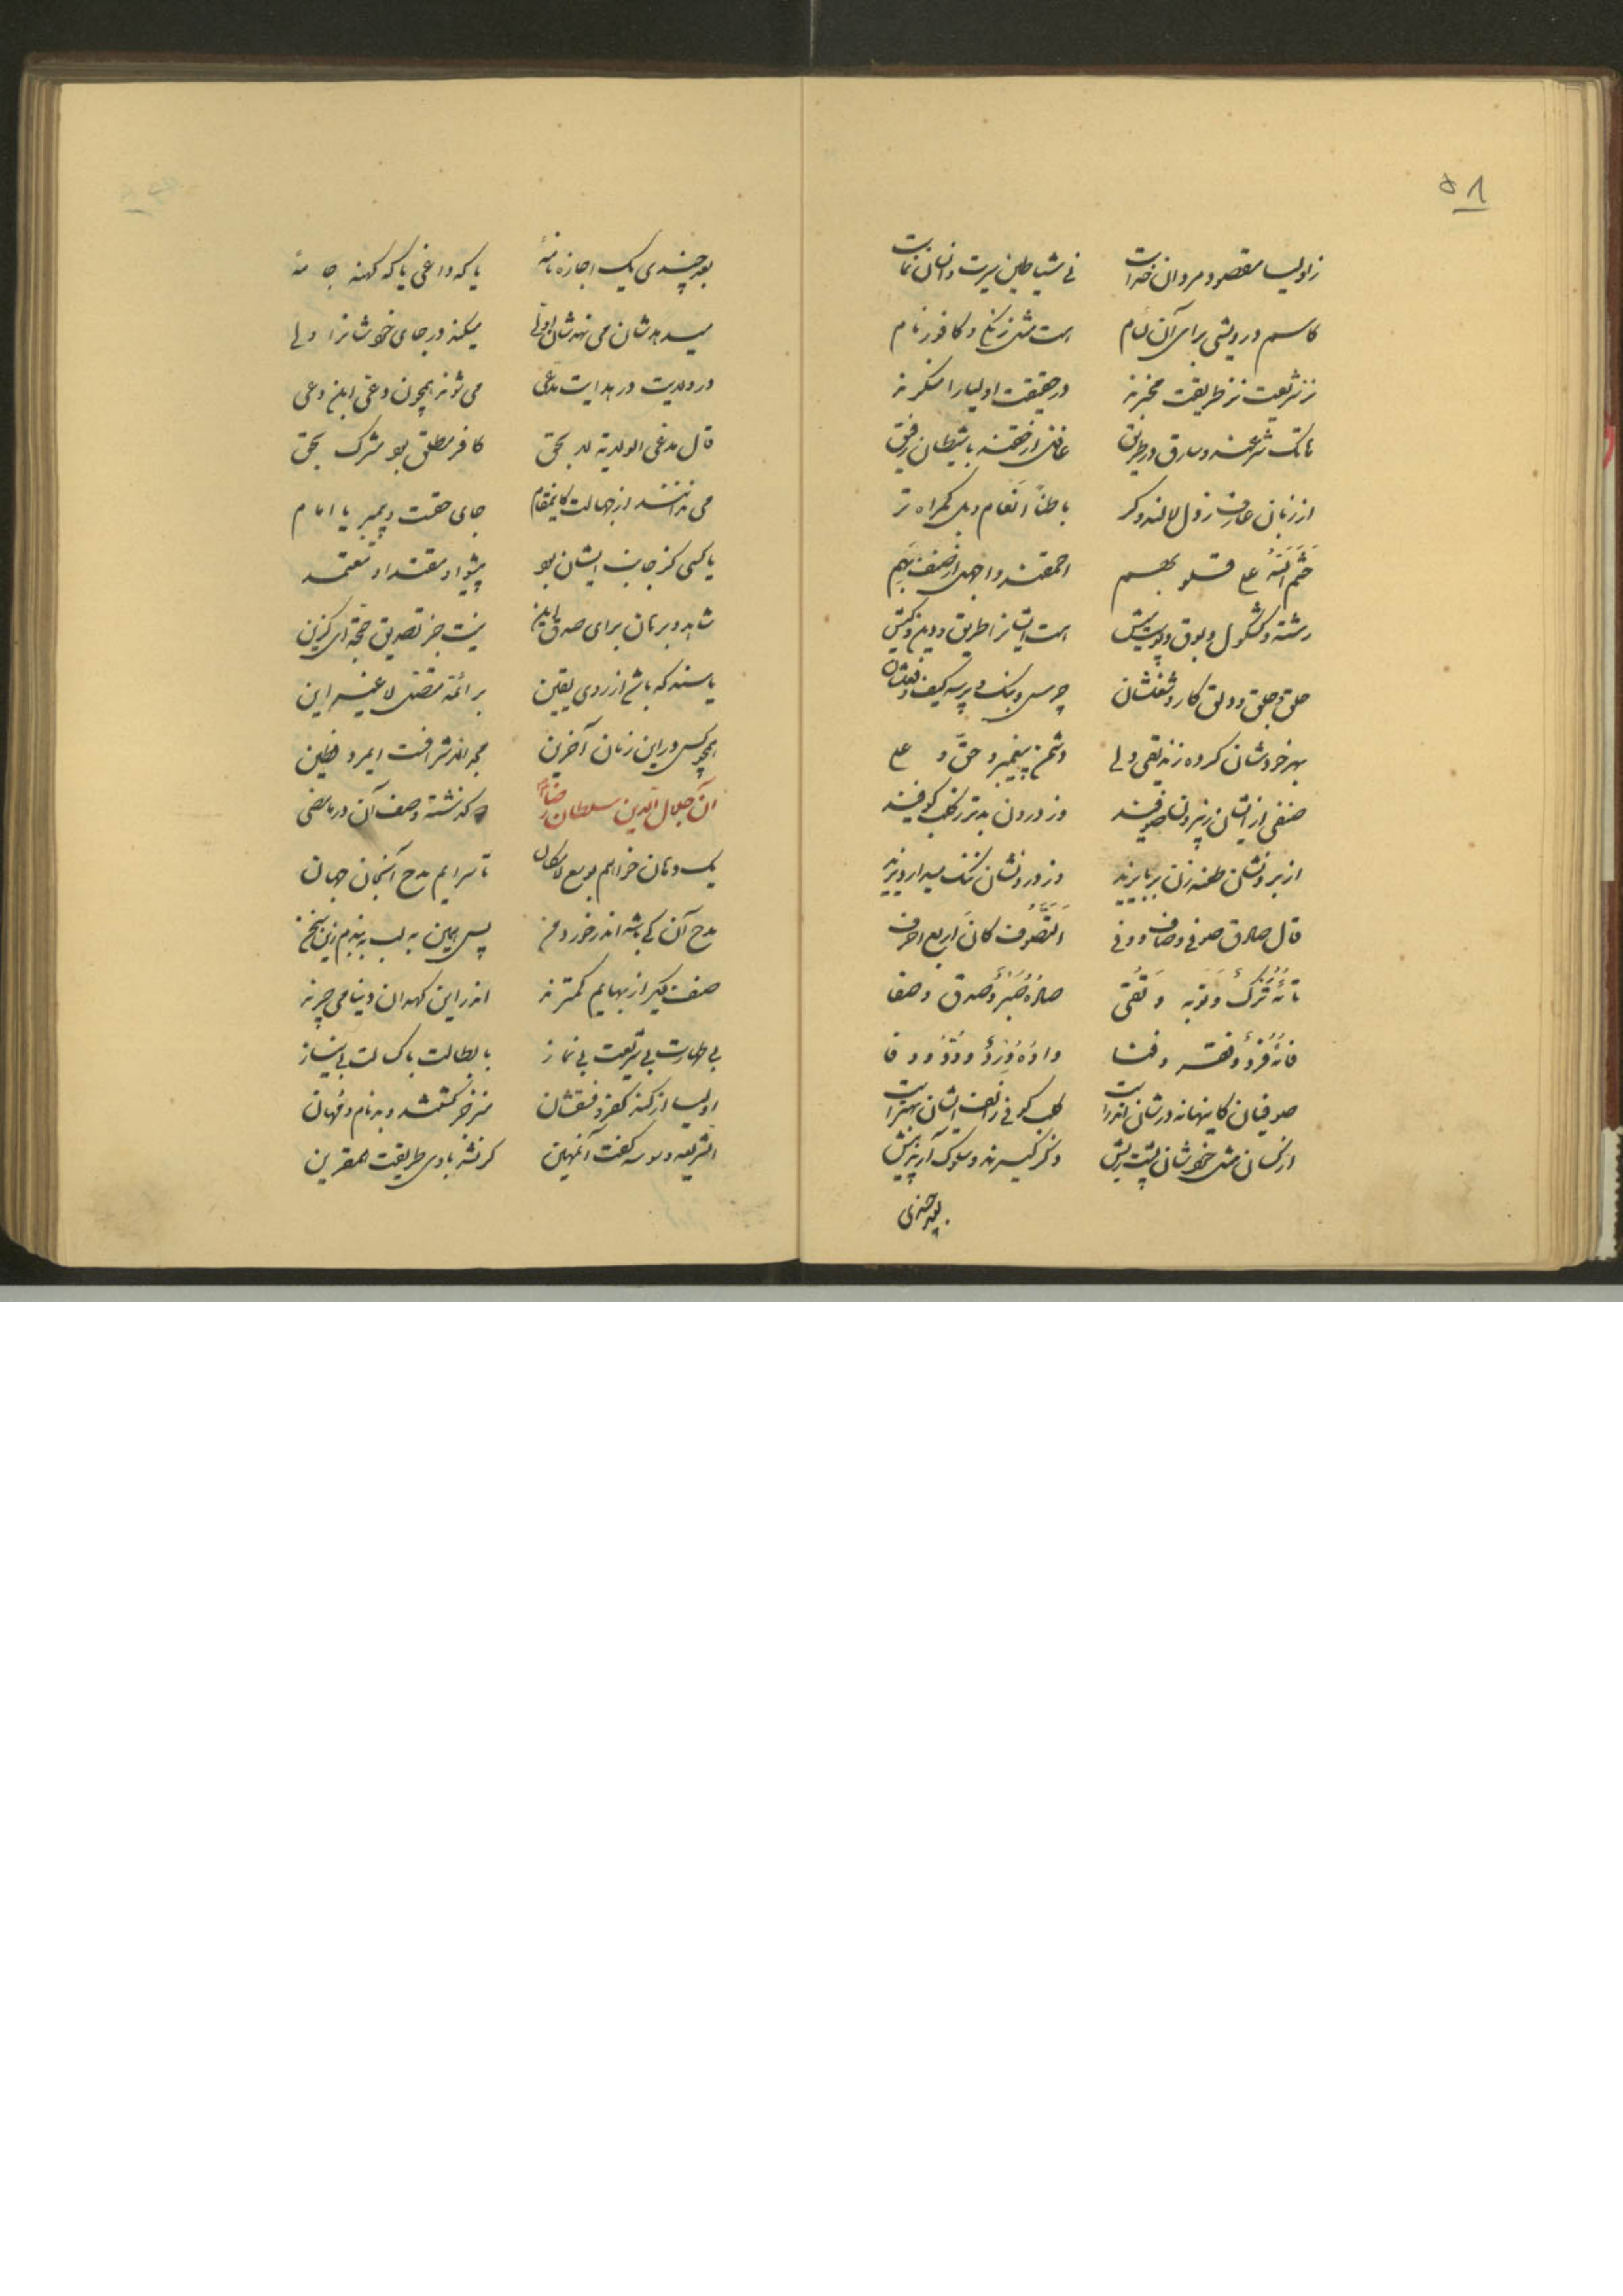 ۵۸
ز اولیا مقصود مردان خداست نی شیاطین سیرت و انسان نماست
کاسم درویشی برای آن لئام است مثل زنگی و کافور نام
نز شریعت نز طریقت مخبرند در حقیقت اولیا را منکرند
شرعند و سارق در طریق غافل از حقند با شیطان رفیق
از زبان عارف زول لا باطناً انعام و بل گمراه تر
ختم الله علی قلوبهم احمقند و اجهل از صنف بهم
رشته و کشکول و بوق و پوستش است ایشانرا طریق و دین و کیش
حلق و جلق و دلق کار و شغلشان چرس و بنگ و پرسه کیف و فعلشان
بهر خودشان کرده زندیقی ولی دشمن پیغمبر و حق و علی
صنفی از ایشان ز بیرون صوفیند وز درون بدتر ز کلب کوفیند
از برونشان طعنه زن بر بایزید وز درونشان ننگ میدارد یزید
قال صادق صوفی و صاف و وفی التصوف کان اربع احرف
تائه ترک و توبه و تقی صاده صبر و صدق و صفا
فائه فرد و فقر و فنا واوه ورد و ود و وفا
صوفیان کاینها نه در شان اندر است کلب کوفی ز الف ایشان بهتر است
از کسان مثل خودشان پست کیش ذکر گیرند و سلوک آرند پیش
بعد چندی
بعد چندی یک اجازه نامهٔ یا که داغی یا که کهنه جامهٔ
میدهدشان می نهدشان اولی میکند در جای خود شانرا ولی
در ولایت در هدایت مدعی می شوند همچون دعی ابن دعی
قال مدعی الولایة لا بحق کافر مطلق بود مشرک بحق
می ندانند از جهالت کاینمقام جای حقست و پیمبر یا امام
یا کسی کز جانب ایشان بود پیشوا و مقتدا و معتمد
شاهد و برهان برای صدق این نیست جز تصدیق حجة ای گزین
یا سند که باشد از روی یقین بر ائمه متصل لا غیر این
همچو کس در این زمان آخرین مجد الاشرافست ایمرد فطین
آن جلال الدین سلطان رضاست که گذشته وصف آن در ما مضی
یک دهان خواهم بوسع لامکان تا سرایم مدح آنجان جهان
مدح آن کی باشد اندر خورد من پس همین به لب ببندم زین سخن
صنف دیگر از بهایم کمترند اندر این کهدان دنیا می چرند
بی طهارت بی شریعت بی نماز با بطالت با کسالت بی نیاز
اولیا از کنه کفر و فسقشان منزجر گشتند و بدنام و نهان
الشریعه وسوسه گفت آنمهین کرنشد بادی طریقت المقرین